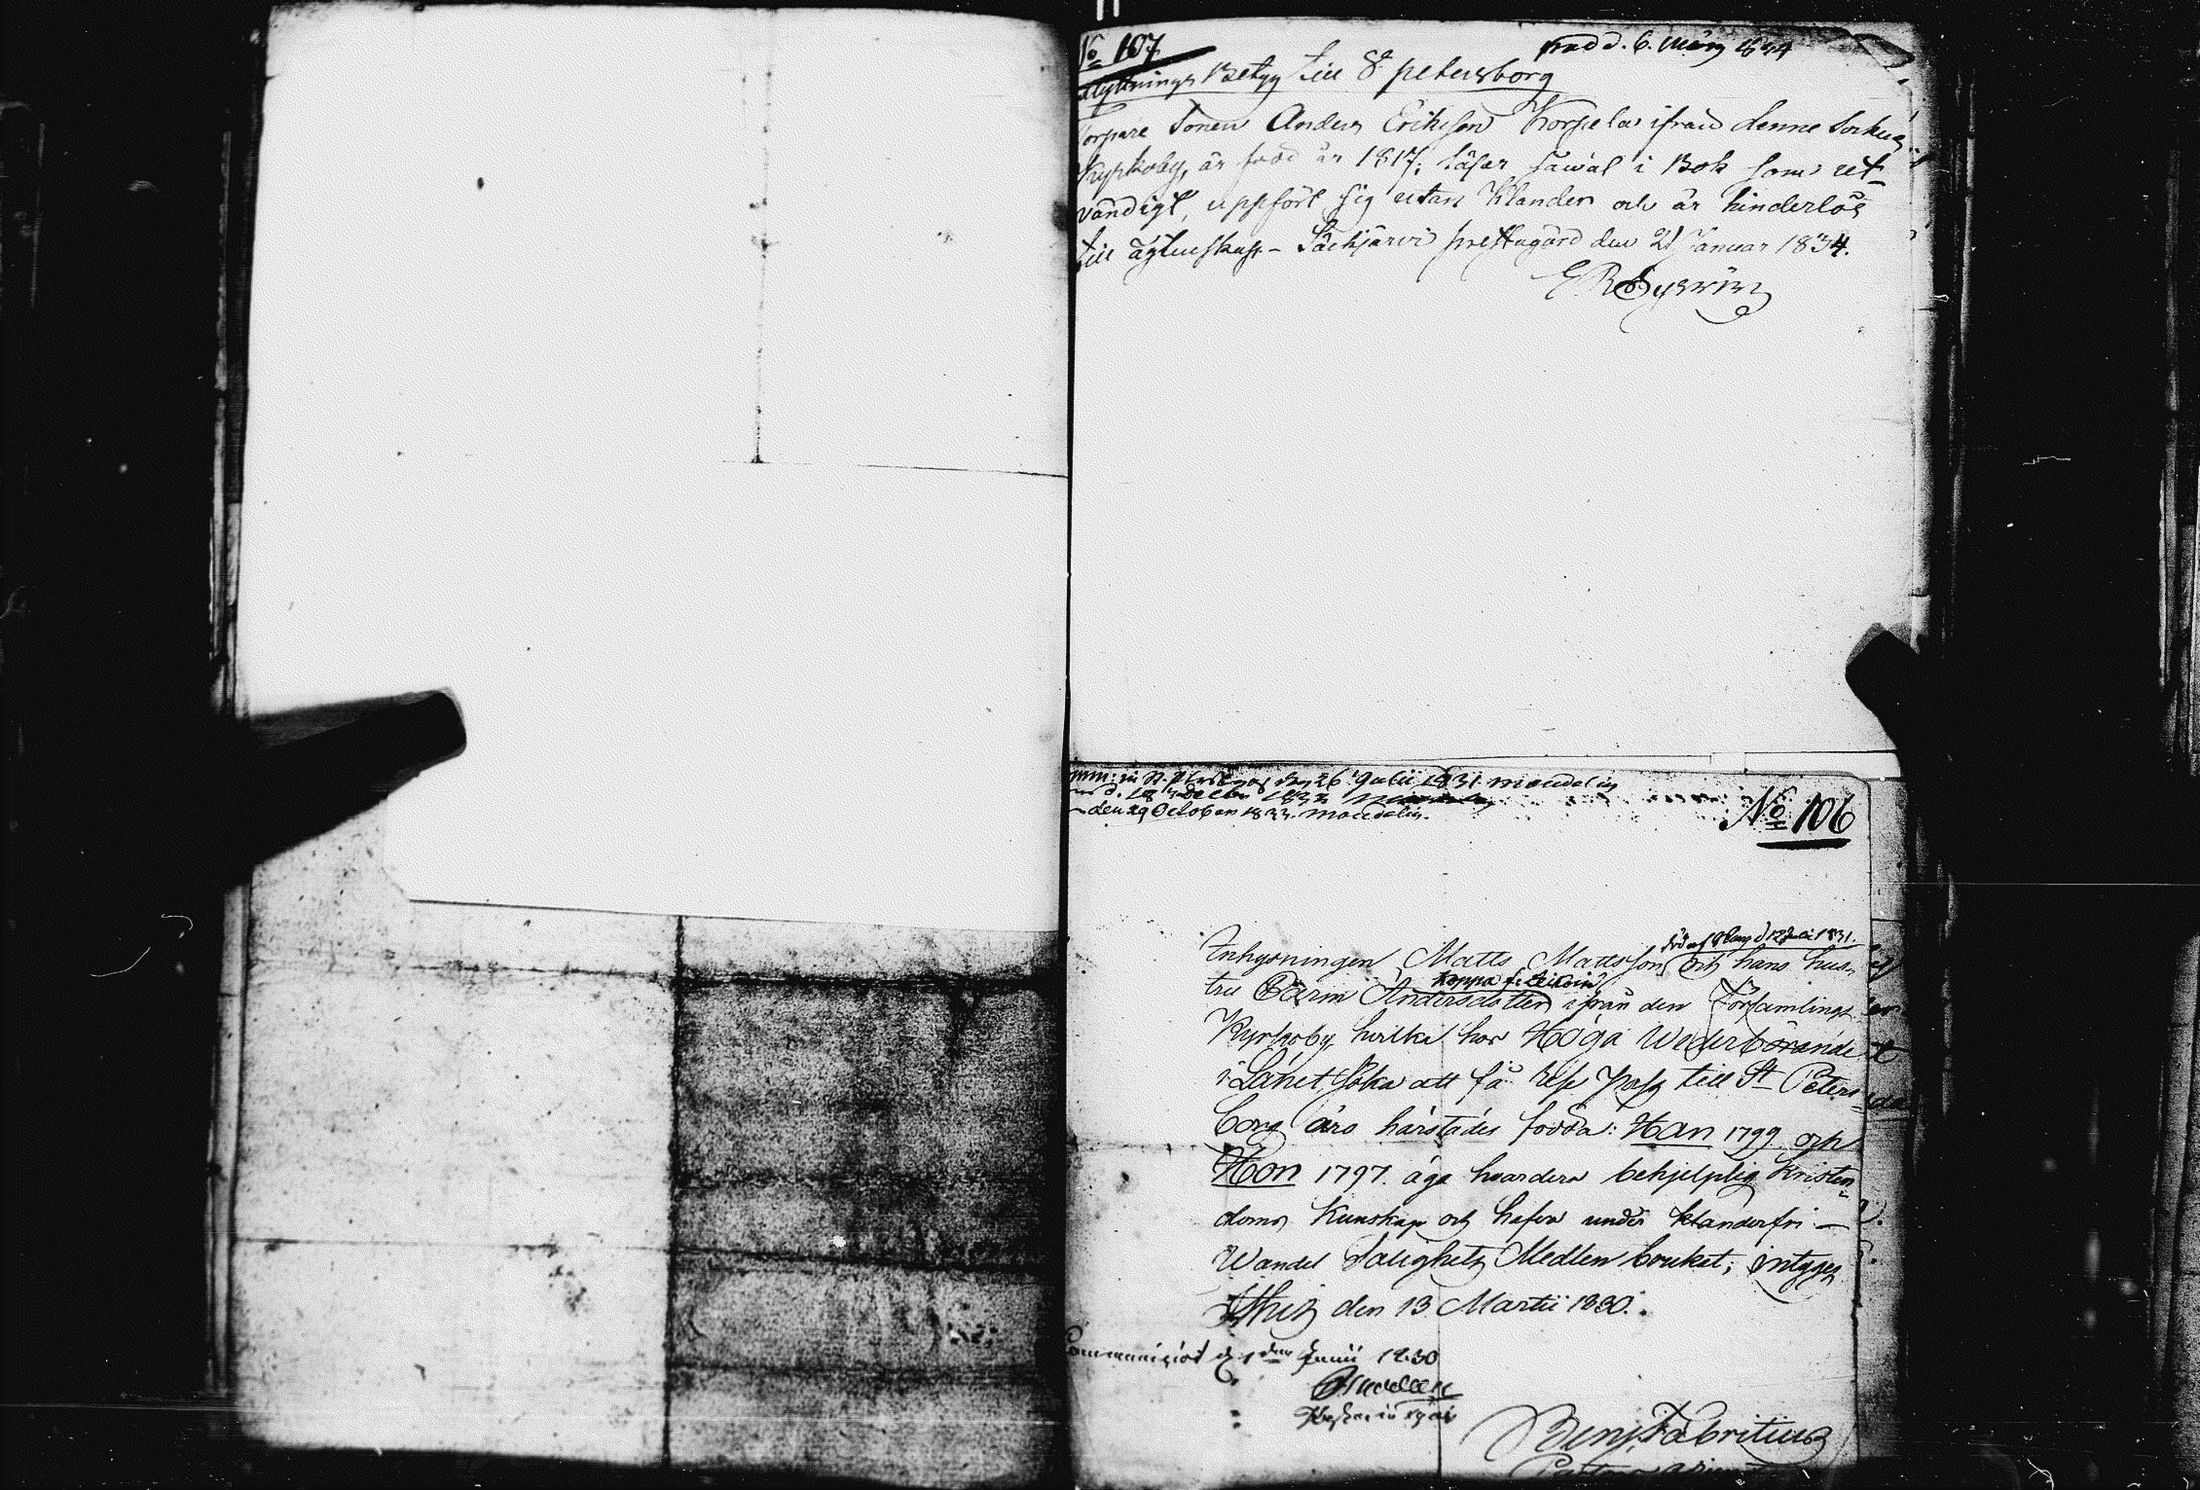 No 107.
d. 6. März 1834
flyttnings Betyg till St petersborg
Torpare Sonen Anders Eriksson Korpela ifrån denne Sockns
Kyrkoby, är född år 1817; läser såwäl i Bok som ut-
vändigt, uppfört sig utan Klander och är hinderlös
till ägtenskap - Säckjärvi prestegård den 21 Januar 1834.
Comm: in St. Petersburg den 26 Julii 1831. Mandelin
1832
den 29 October 1833. Mandelin.
No 106
d 12 Juli 1831.
Inhysningen Matts Mattsson och hans hus-
tru Carin Andersdotter ifrån den Församlings
Kyrkoby hvilka hos Höga Wederbörande
i Länet söka att få Rese Pass till St Peters
borg äro härstädes födda: Han 1799 och
Hon 1797. äga hvardera behjelplig Kristen-
doms Kunskap och hafva under klanderfri-
Wandel Salighets Medlen brukat; intygas
den 13 Martii 1830.
Communicirt d 1 den Junii 1830
Benj. Fabritius
Pastor